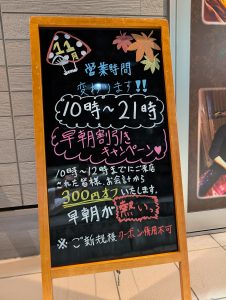 11月
営業時間
変わります!!
10時〜21時
早朝割引き
キャンペーン♥
10時〜12時までにご来店
された皆様、お会計から
300円オフいたします。
早朝が熱いっ
※ご新規様クーポン併用不可